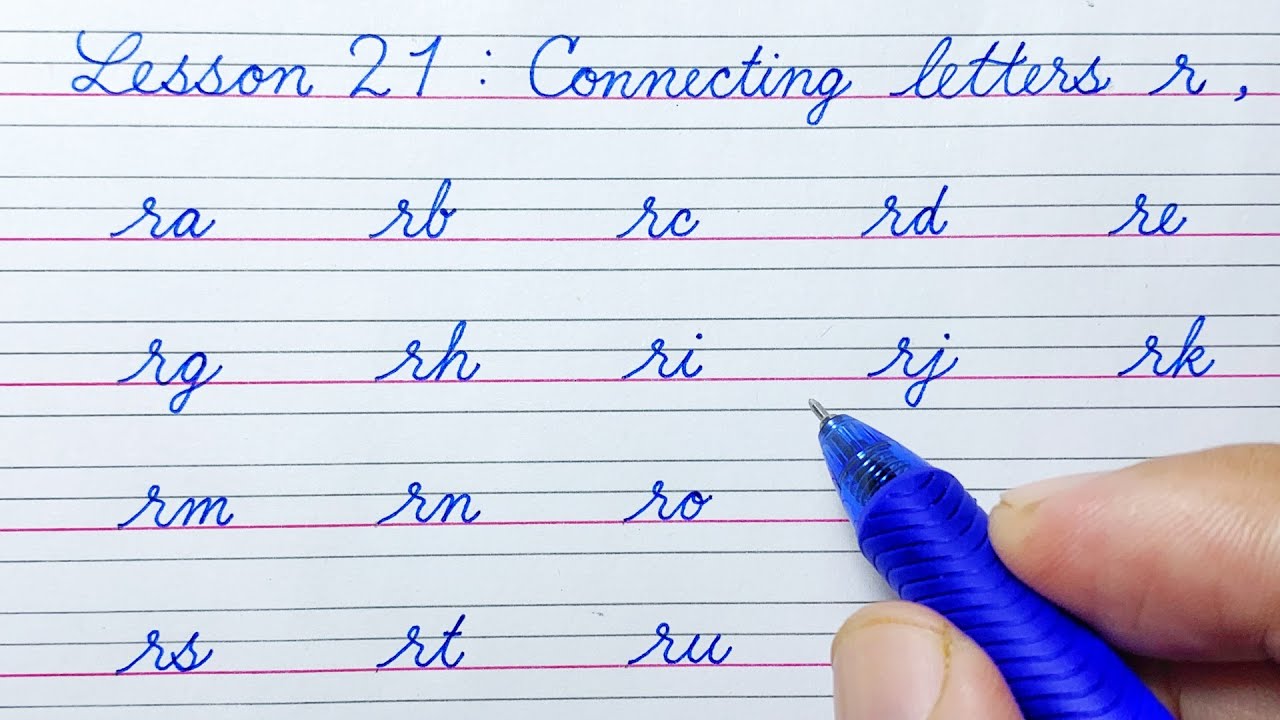 Lesson 21 : Connecting letters r ,
ra rb rc rd re
rg rh ri rj rk
rm rn ro
rs rt ru